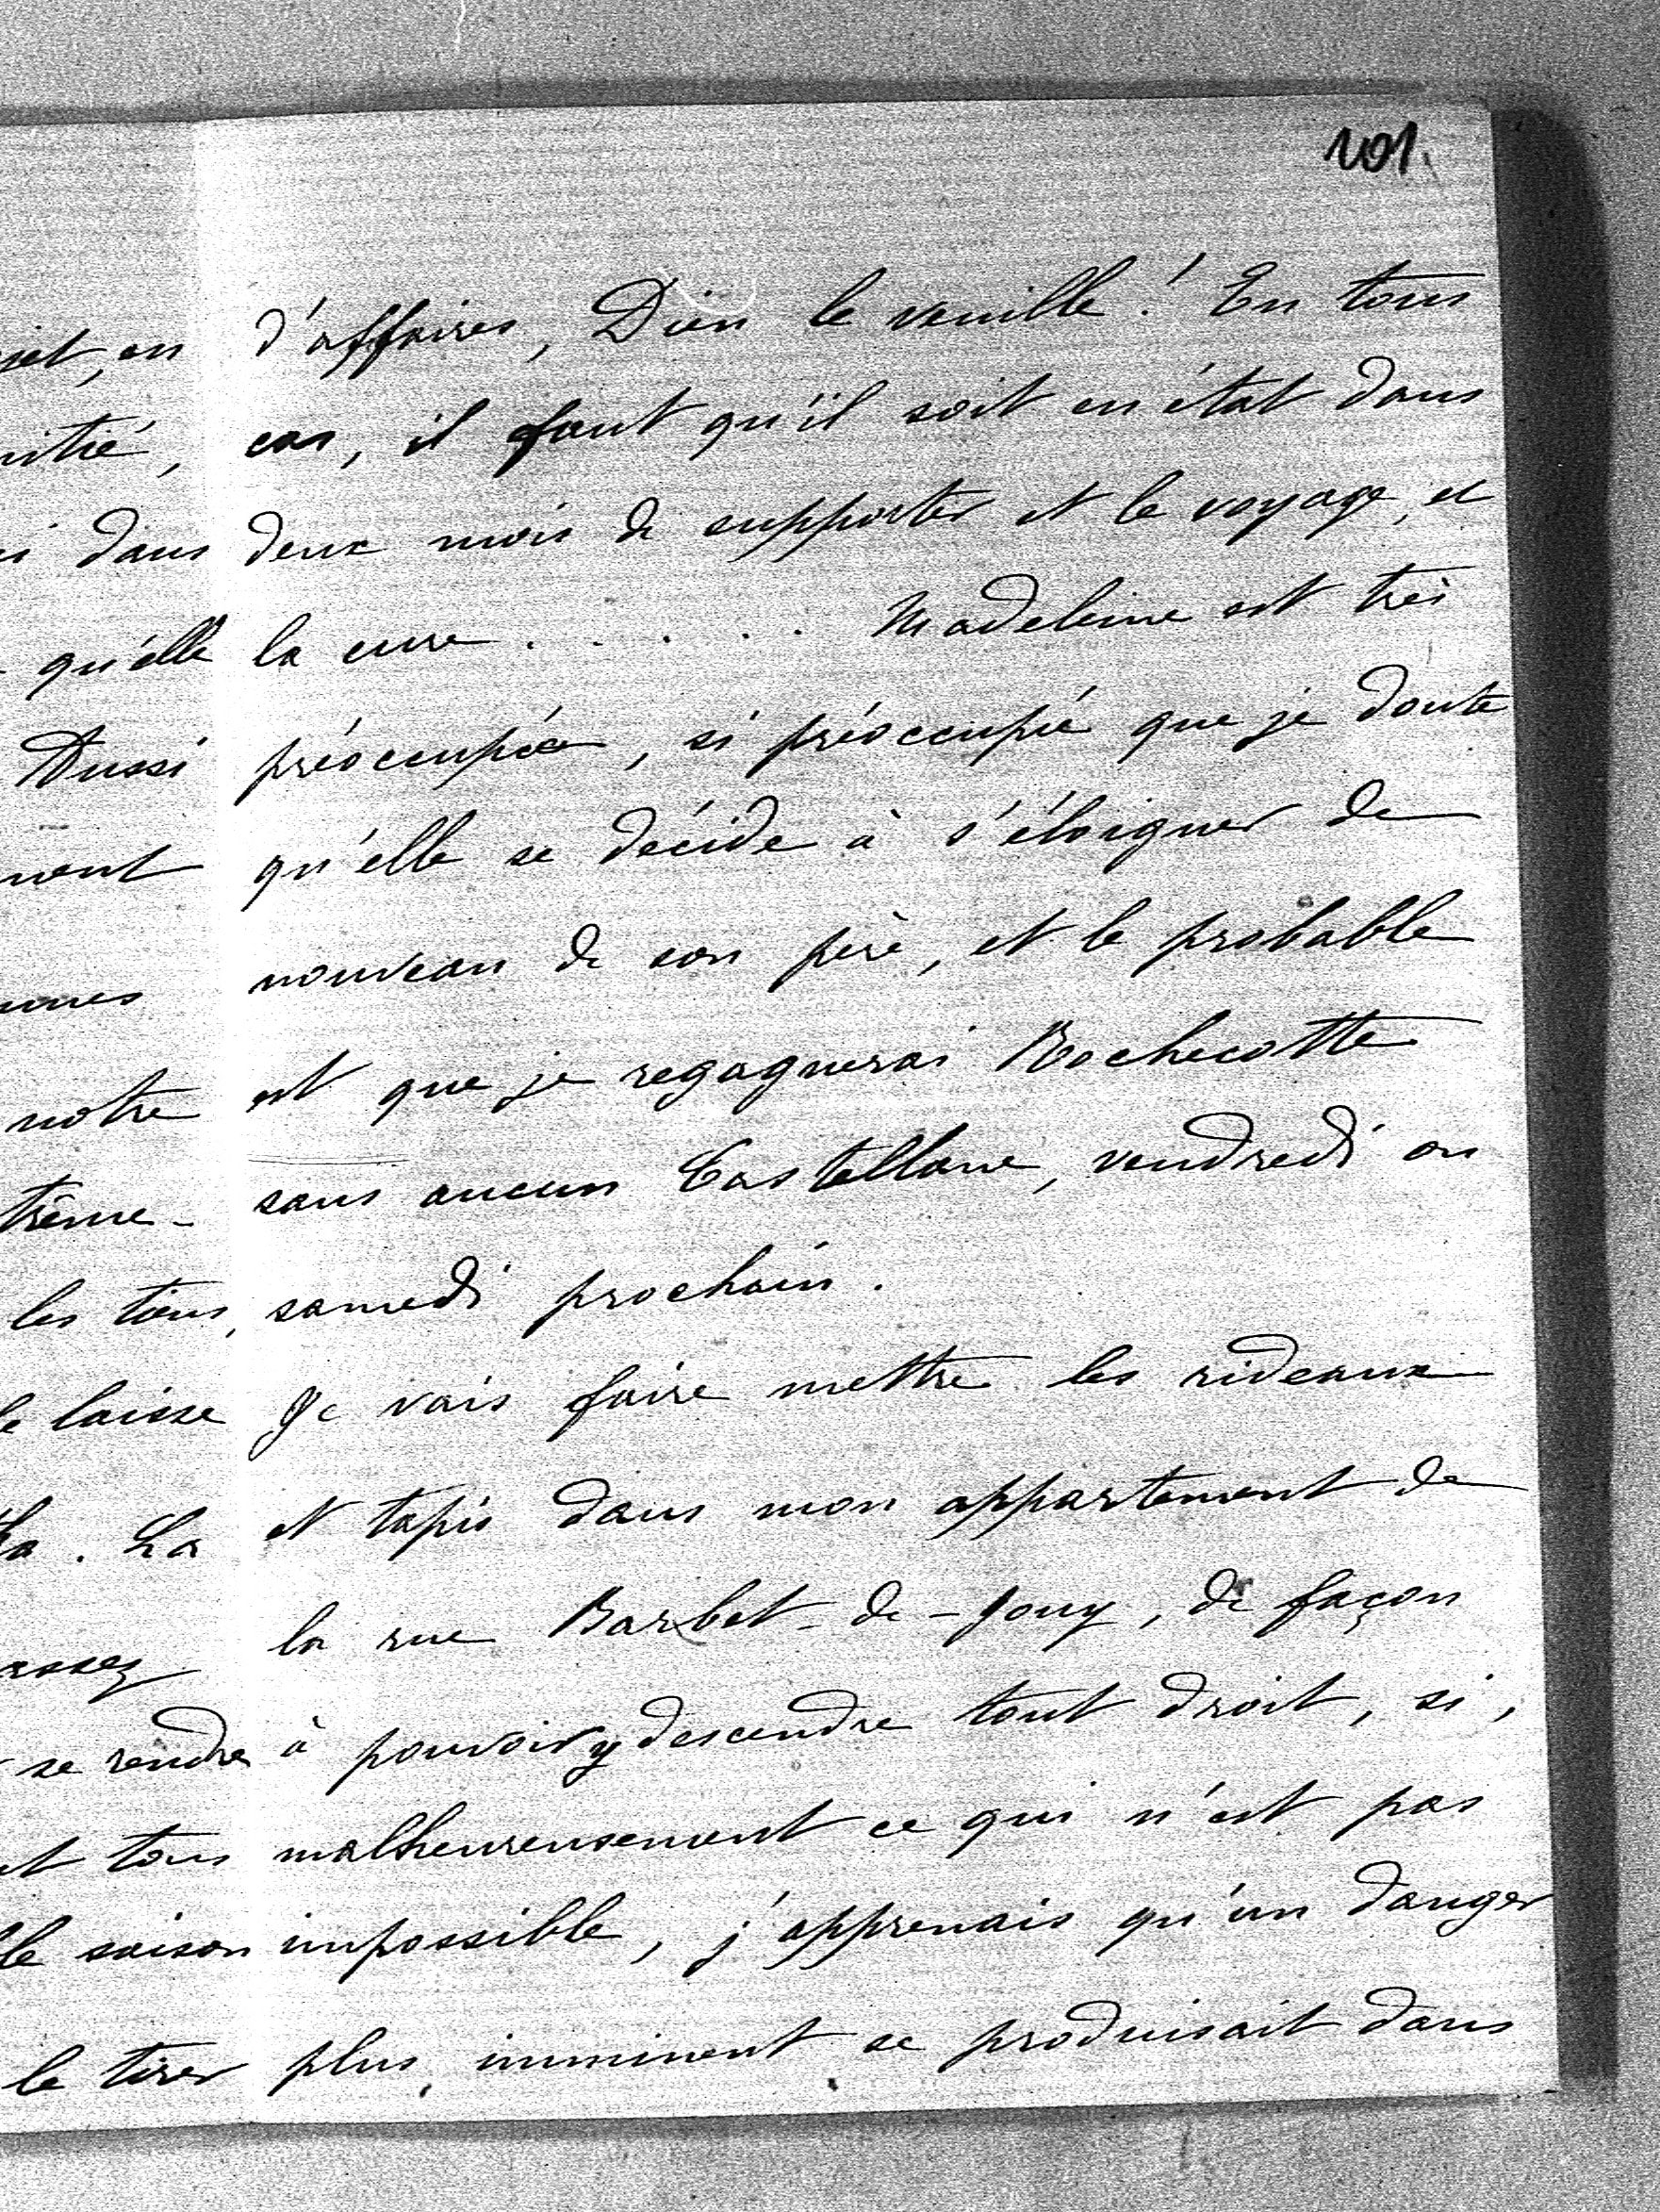 101.
d'affaires, Dieu le veuille! En tous
cas, il faut qu'il soit en état dans
deux mois de supporter et le voyage, et
la cure . . . . . . Madeleine est très
préoccupée, si préoccupée que je doute
qu'elle se décide à s'éloigner de
nouveau de son père, et le probable
est que je regagnerai Rochecotte
sans aucun Castellane, vendredi ou
samedi prochain.
Je vais faire mettre les rideaux
et tapis dans mon appartement de
la rue Barbet-de-Jouy, de façon
à pouvoir y descendre tout droit, si,
malheureusement ce qui n'est pas
impossible, j'apprenais qu'un danger
plus imminent se produisait dans
en
dans
qu'elle
Aussi
notre
les tiens,
laisse
. La
assez
se rendre
et tous
saison
le tirer